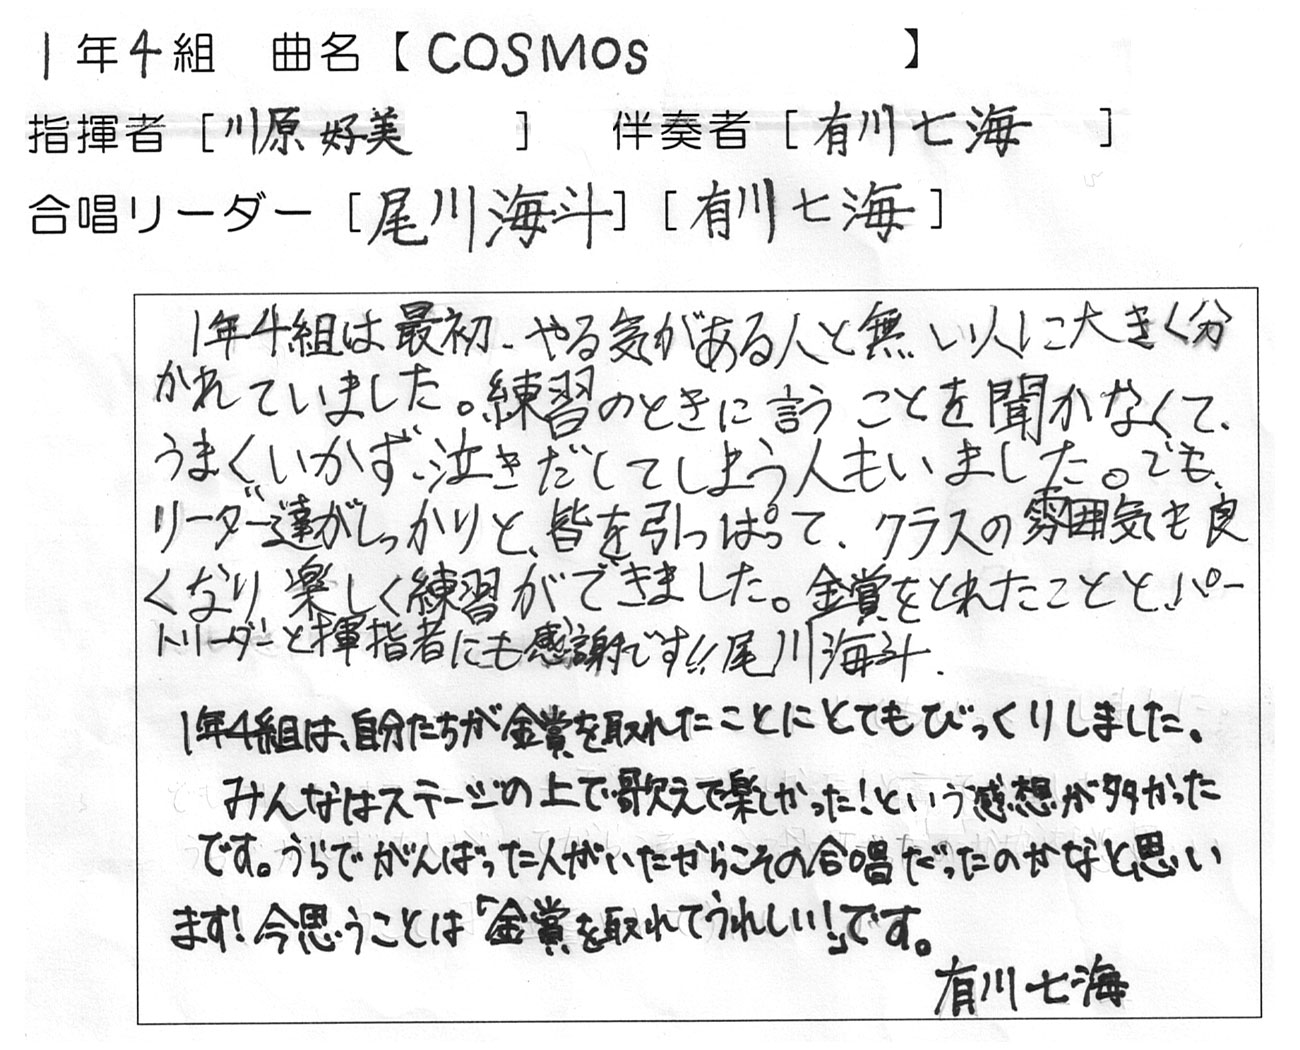 1年4組 曲名【COSMOS】
指揮者[川原好美] 伴奏者[有川七海]
合唱リーダー[尾川海斗][有川七海]
1年4組は最初、やる気がある人と無い人に大きく分
かれていました。練習のときに言うことを聞かなくて、
うまくいかず、泣きだしてしまう人もいました。でも、
リーダー達がしっかりと、皆を引っぱって、クラスの雰囲気も良
くなり楽しく練習ができました。金賞をとれたことと、パー
トリーダーと揮指者にも感謝です!!尾川海斗.
1年4組は、自分たちが金賞を取れたことにとてもびっくりしました。
みんなはステージの上で歌えて楽しかった!という感想が多かった
です。うらでがんばった人がいたからこその合唱だったのかなと思い
ます!今思うことは「金賞を取れてうれしい!」です。
有川七海